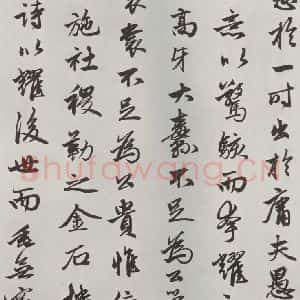 於一時出於庸夫愚
意以驚駭而夸耀
高牙大纛不足為公
裳不足為公貴惟
施社稷勒之金石播
詩以耀後世而垂無
Shufawang.cn